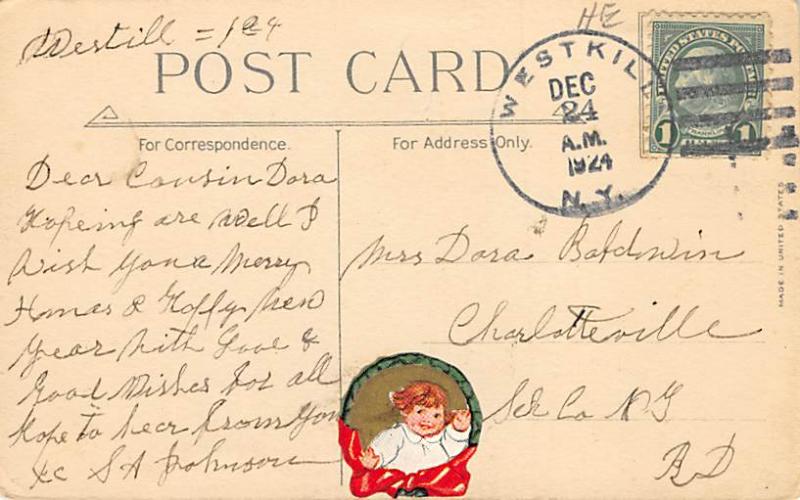 Westill = 1924
HE
POST CARD
WESTKILL
DEC
24
A.M.
1924
N.Y.
UNITED STATES POSTAGE
FRANKLIN
1 1
For Correspondence.
For Address Only.
MADE IN UNITED STATES
Dear Cousin Dora
Hopeing are Well I
Wish You a Merry
Xmas & Happy New
Year With Love &
Good Wishes for all
Hope to hear from You
&c S A Johnson
Mrs Dora Baldwin
Charlotteville
Sch Co N Y
R D